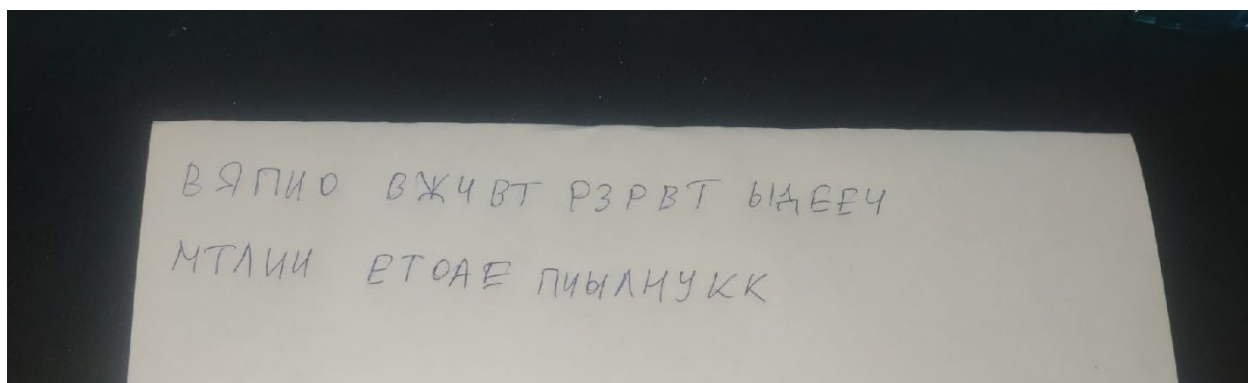 ВЯПИО ВЖЧВТ РЗРВТ ЫДЕЕЧ
МТЛИИ ЕТОАЕ ПИЫЛНУКК